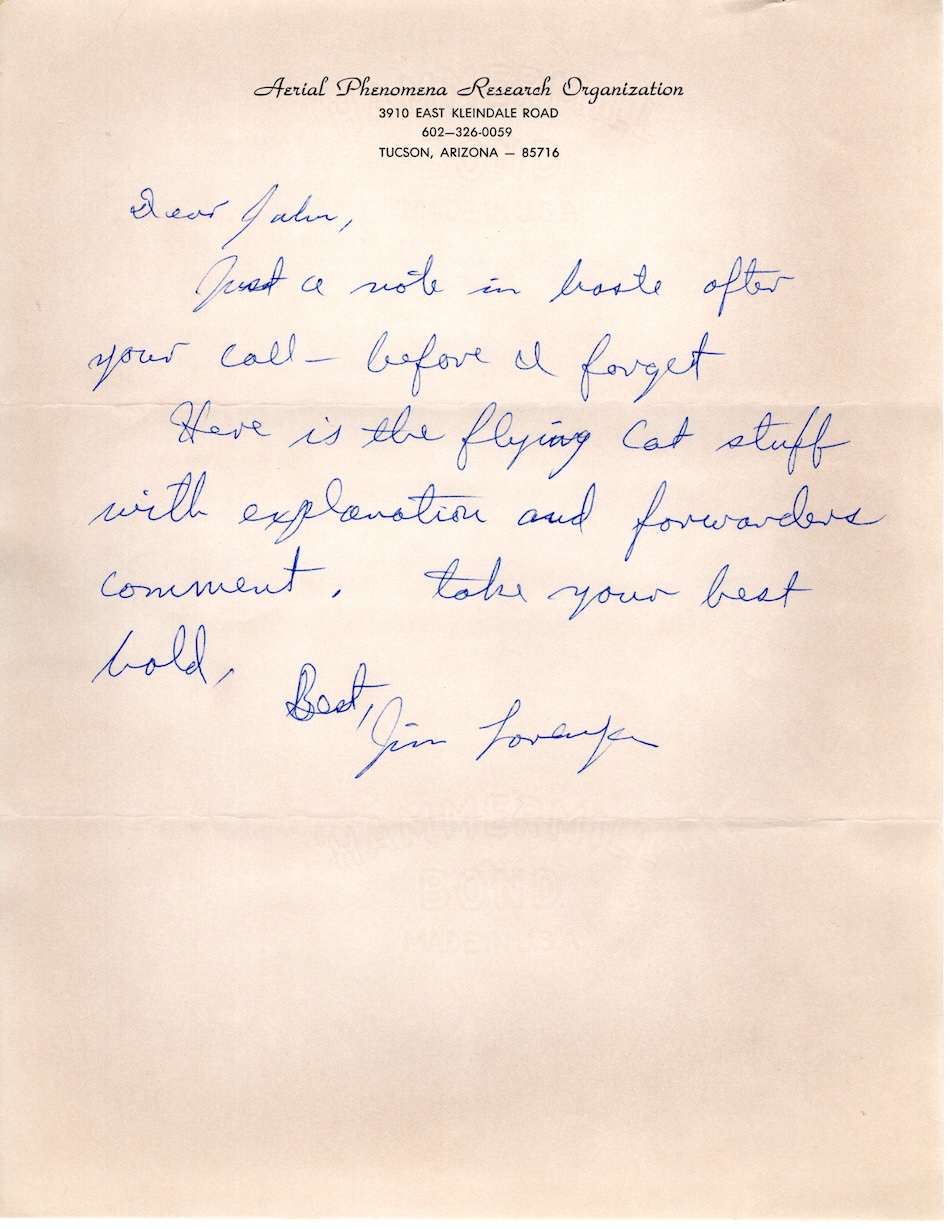 Aerial Phenomena Research Organization
3910 EAST KLEINDALE ROAD
602—326-0059
TUCSON, ARIZONA — 85716
Dear John,
Just a note in haste after
your call — before I forget
Here is the flying Cat stuff
with explanation and forwarders
comment. take your best
hold,
Best,
Jim Lorenzen
BOND